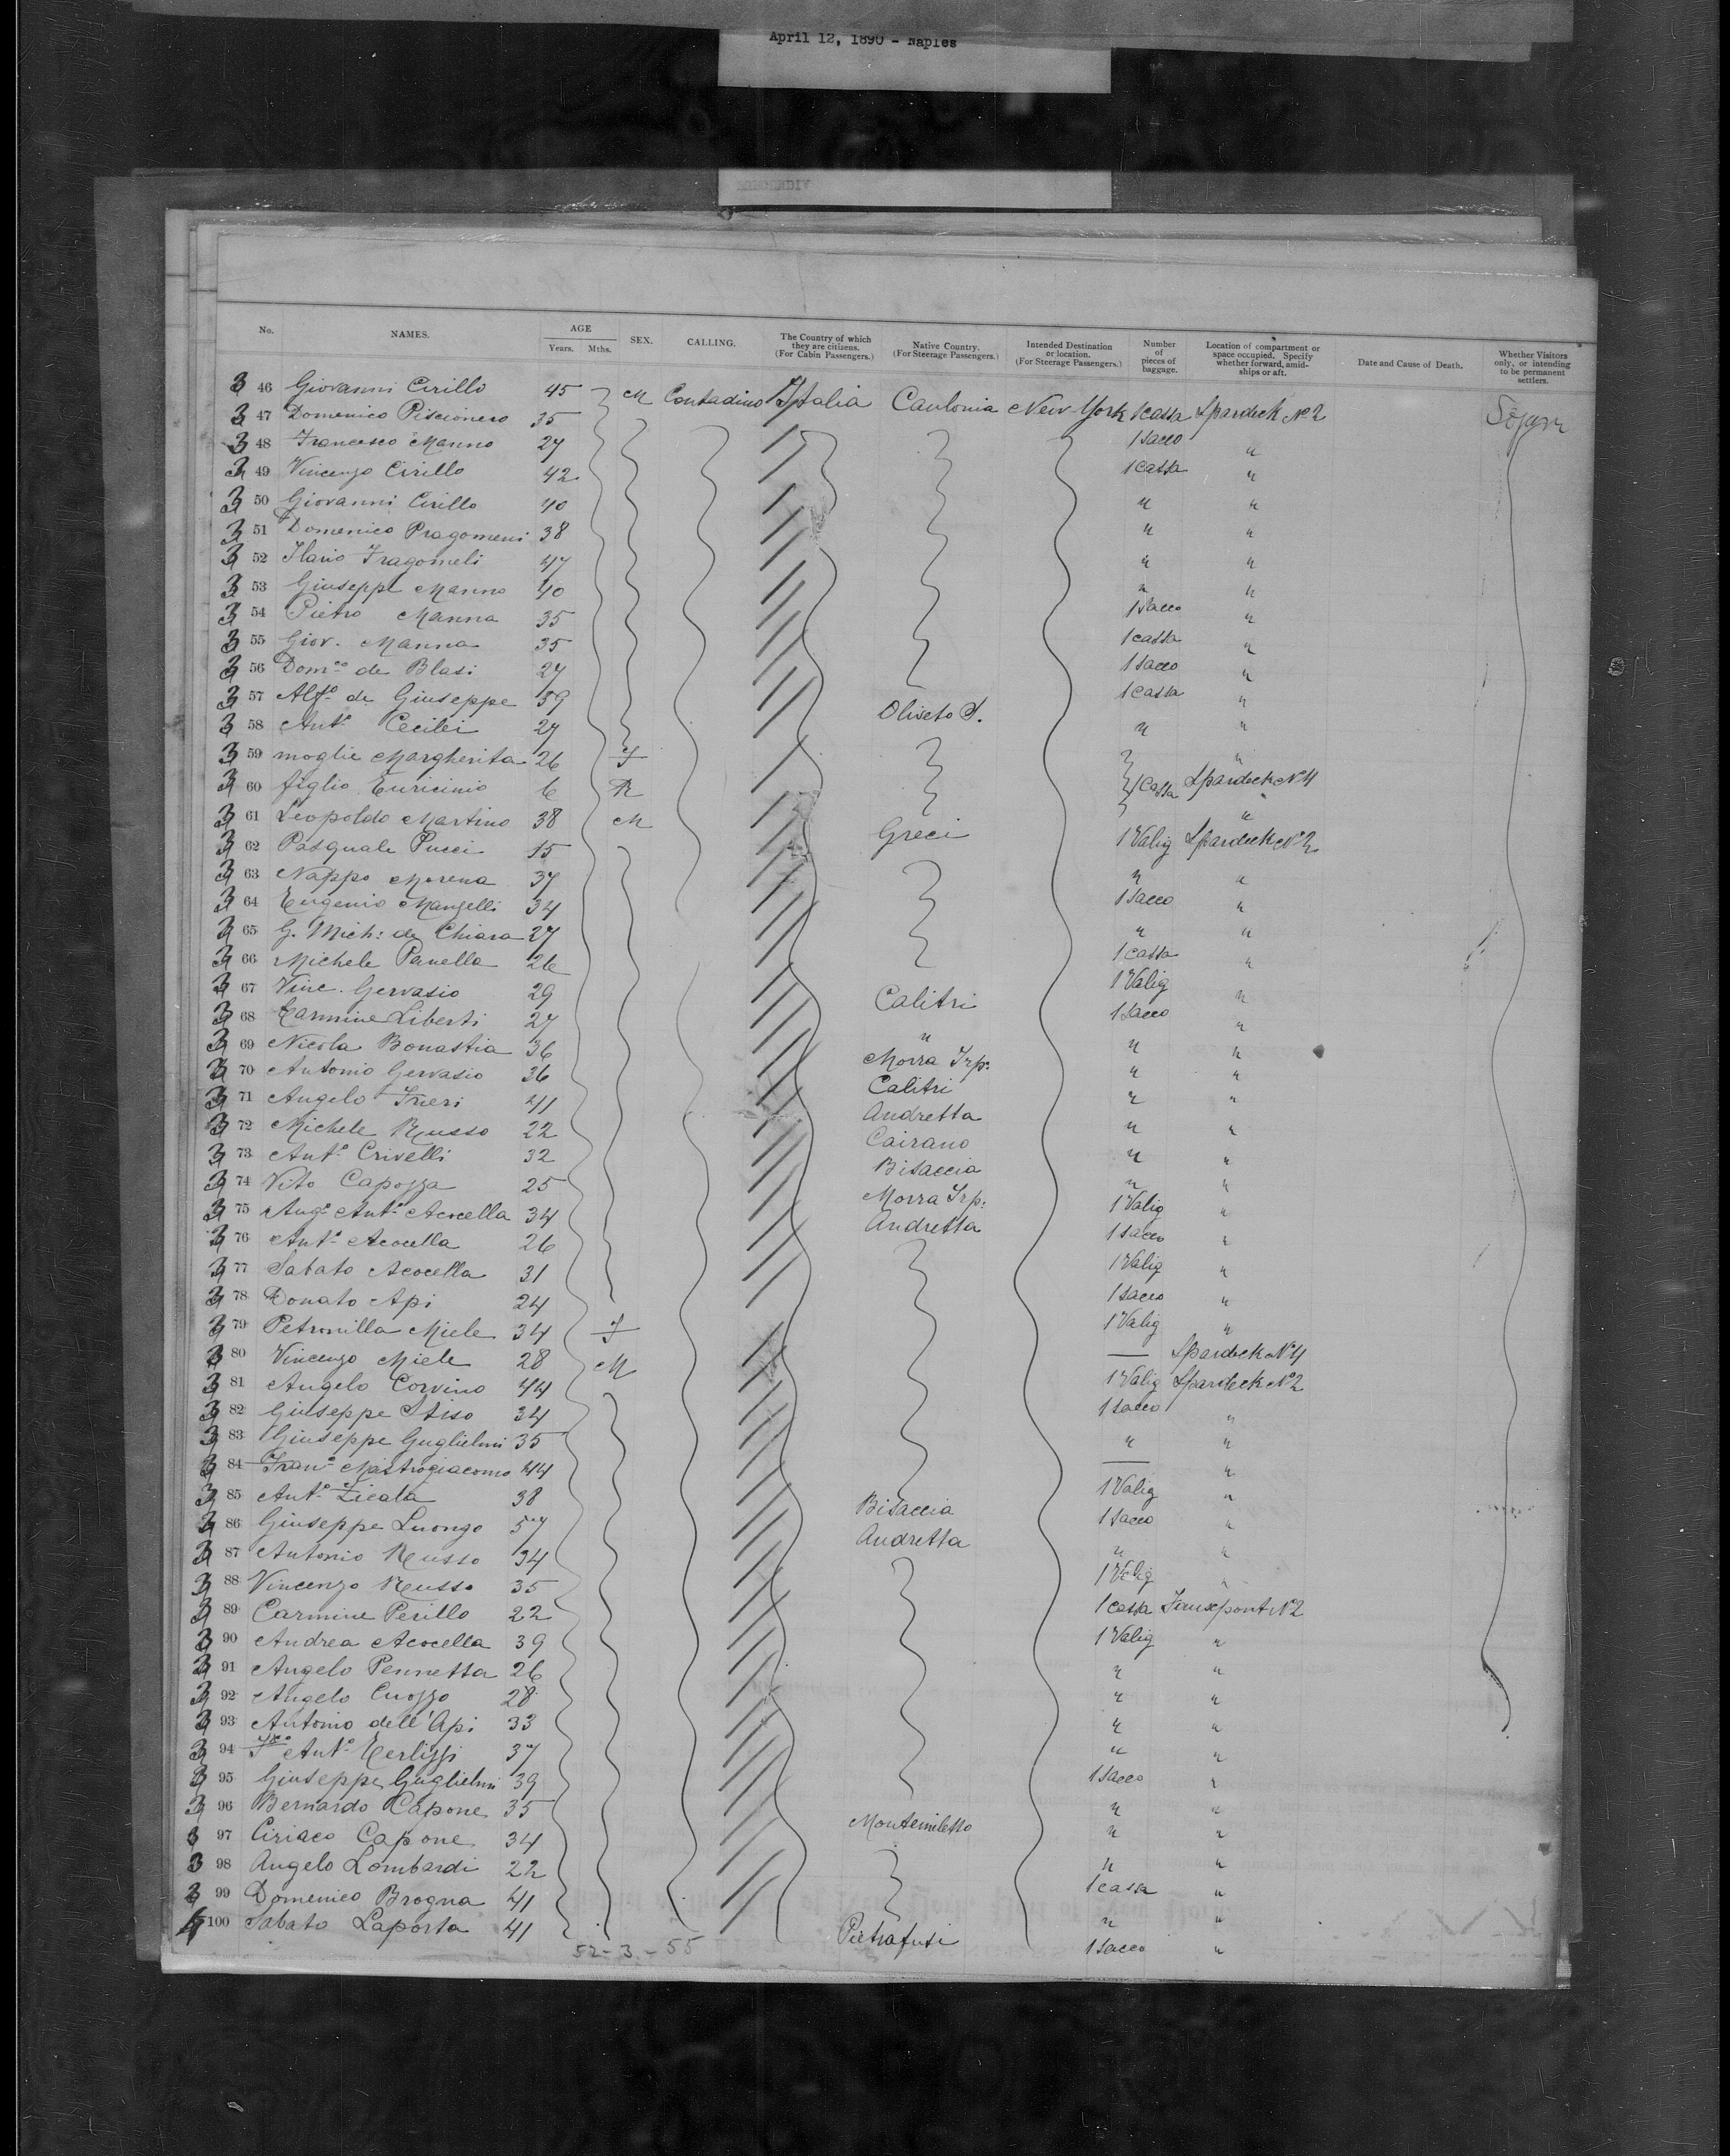 April 12, 1890 - Naples
No. NAMES. AGE Years. Mths. SEX. CALLING. The Country of which they are citizens. (For Cabin Passengers.) Native Country. (For Steerage Passengers.) Intended Destination or location. (For Steerage Passengers.) Number of pieces of baggage. Location of compartment or space occupied. Specify whether forward, amidships or aft. Date and Cause of Death. Whether Visitors only, or intending to be permanent settlers.
3 46 Giovanni Cirillo 45 M Contadino Italia Caulonia New-York 1 cassa Spardeck No 2
3 47 Domenico Piscionero 35 1 sacco "
3 48 Francesco Manno 27 1 cassa "
3 49 Vincenzo Cirillo 42 " "
3 50 Giovanni Cirillo 40 " "
3 51 Domenico Pragomeni 38 " "
3 52 Ilario Fragomeli 47 " "
3 53 Giuseppe Manno 40 1 sacco "
3 54 Pietro Manna 35 1 cassa "
3 55 Giov. Manna 35 1 sacco "
3 56 Dom.co de Blasi 27 1 cassa "
3 57 Alf.o de Giuseppe 39 Oliveto S. " "
3 58 Ant.o Cecilei 27 "
3 59 moglie Margherita 26 F 1 cassa Spardeck No 4
3 60 figlio 6 M "
3 61 Leopoldo Martino 38 M Greci 1 Valig Spardeck No 2
3 62 Pasquale Pucci 15 " "
3 63 Nappo Morena 37 1 sacco "
3 64 Eugenio Manzelli 34 " "
3 65 G. Mich: de Chiara 27 1 cassa "
3 66 Michele Panella 26 1 Valig
3 67 Vinc. Gervasio 29 Calitri 1 sacco "
3 68 Carmine Liberti 27 " " "
3 69 Nicola Bonastia 36 Morra Irp: " "
3 70 Antonio Gervasio 36 Calitri " "
3 71 Angelo Frieri 41 Andretta " "
3 72 Michele Russo 22 Cairano " "
3 73 Ant.o Crivelli 32 Bisaccia " "
3 74 Vito Capozza 25 Morra Irp: 1 Valig "
3 75 Ang.o Ant.o Acocella 34 Andretta 1 sacco "
3 76 Ant.o Acocella 26 1 Valig "
3 77 Sabato Acocella 31 1 sacco "
3 78 Donato Api 24 1 Valig "
3 79 Petronilla Miele 34 F — Spardeck No 4
3 80 Vincenzo Miele 28 M 1 Valig Spardeck No 2
3 81 Angelo Corvino 44 1 sacco "
3 82 Giuseppe Stiso 34 " "
3 83 Giuseppe Guglielmi 35 — "
3 84 Fran.o Mastrogiacomo 44 1 Valig "
3 85 Ant.o Zicala 38 Bisaccia 1 sacco "
3 86 Giuseppe Luongo 57 Andretta " "
3 87 Antonio Russo 34 1 Valig "
3 88 Vincenzo Russo 35 1 cassa No 2
3 89 Carmine Perillo 22 1 Valig "
3 90 Andrea Acocella 39 " "
3 91 Angelo Pennetta 26 " "
3 92 Angelo Cuozzo 28 " "
3 93 Antonio dell'Api 33 " "
3 94 Ant.o Cerlizzi 37 1 sacco "
3 95 Giuseppe Guglielmi 39 " "
3 96 Bernardo Capone 35 Montemiletto " "
3 97 Ciriaco Capone 34 " "
3 98 Angelo Lombardi 22 1 cassa "
3 99 Domenico Brogna 41 " "
4 100 Sabato Laporta 41 Pietrafusi 1 sacco "
52-3-55